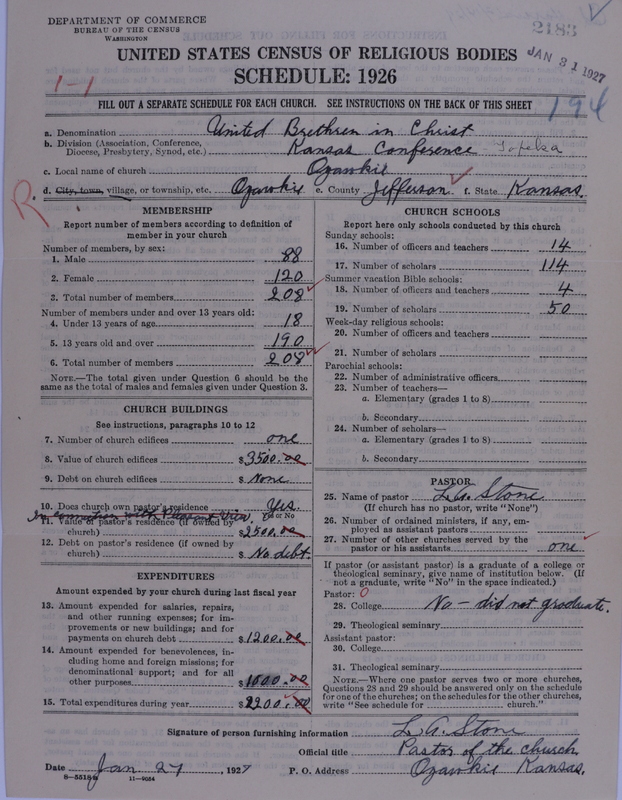 DEPARTMENT OF COMMERCE
BUREAU OF THE CENSUS
WASHINGTON
2183
JAN 31 1927
UNITED STATES CENSUS OF RELIGIOUS BODIES
SCHEDULE: 1926
1-1
194
FILL OUT A SEPARATE SCHEDULE FOR EACH CHURCH. SEE INSTRUCTIONS ON THE BACK OF THIS SHEET
a. Denomination United Brethren in Christ
b. Division (Association, Conference, Diocese, Presbytery, Synod, etc.) Kansas Conference Topeka
c. Local name of church Ozawkie
d. City, town, village, or township, etc. Ozawkie e. County Jefferson f. State Kansas.
R.
MEMBERSHIP
Report number of members according to definition of
member in your church
Number of members, by sex:
1. Male 88
2. Female 120
3. Total number of members 208
Number of members under and over 13 years old:
4. Under 13 years of age 18
5. 13 years old and over 190
6. Total number of members 208
NOTE.—The total given under Question 6 should be the
same as the total of males and females given under Question 3.
CHURCH BUILDINGS
See instructions, paragraphs 10 to 12
7. Number of church edifices one
8. Value of church edifices $3500.00
9. Debt on church edifices $ None
10. Does church own pastor's residence Yes.
Yes or No
In connection with Pleasant View.
11. Value of pastor's residence (if owned by
church) $2500.00
12. Debt on pastor's residence (if owned by
church) $ No debt.
EXPENDITURES
Amount expended by your church during last fiscal year
13. Amount expended for salaries, repairs,
and other running expenses; for im-
provements or new buildings; and for
payments on church debt $1200.00
14. Amount expended for benevolences, in-
cluding home and foreign missions; for
denominational support; and for all
other purposes $1000.00
15. Total expenditures during year $2200.00
CHURCH SCHOOLS
Report here only schools conducted by this church
Sunday schools:
16. Number of officers and teachers 14
17. Number of scholars 114
Summer vacation Bible schools:
18. Number of officers and teachers 4
19. Number of scholars 50
Week-day religious schools:
20. Number of officers and teachers
21. Number of scholars
Parochial schools:
22. Number of administrative officers
23. Number of teachers—
a. Elementary (grades 1 to 8)
b. Secondary
24. Number of scholars—
a. Elementary (grades 1 to 8)
b. Secondary
PASTOR
25. Name of pastor L. A. Stone
(If church has no pastor, write "None")
26. Number of ordained ministers, if any, em-
ployed as assistant pastors
27. Number of other churches served by the
pastor or his assistants one
If pastor (or assistant pastor) is a graduate of a college or
theological seminary, give name of institution below. (If
not a graduate, write "No" in the space indicated.)
Pastor: 0
28. College No - did not graduate.
29. Theological seminary
Assistant pastor:
30. College
31. Theological seminary
NOTE.—Where one pastor serves two or more churches,
Questions 28 and 29 should be answered only on the schedule
for one of the churches; on the schedules for the other churches,
write "See schedule for church."
Signature of person furnishing information L. A. Stone
Official title Pastor of the church
Date Jan 27, 1927 P. O. Address Ozawkie Kansas.
8-5518 11-9034